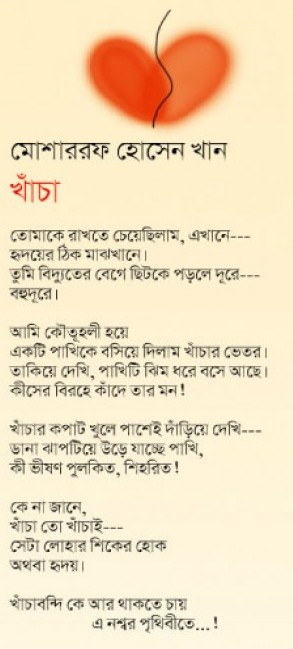 মোশাররফ হোসেন খান
খাঁচা
তোমাকে রাখতে চেয়েছিলাম, এখানে---
হৃদয়ের ঠিক মাঝখানে।
তুমি বিদ্যুতের বেগে ছিটকে পড়লে দূরে---
বহুদূরে।
আমি কৌতূহলী হয়ে
একটি পাখিকে বসিয়ে দিলাম খাঁচার ভেতর।
তাকিয়ে দেখি, পাখিটি ঝিম ধরে বসে আছে।
কীসের বিরহে কাঁদে তার মন!
খাঁচার কপাট খুলে পাশেই দাঁড়িয়ে দেখি---
ডানা ঝাপটিয়ে উড়ে যাচ্ছে পাখি,
কী ভীষণ পুলকিত, শিহরিত!
কে না জানে,
খাঁচা তো খাঁচাই---
সেটা লোহার শিকের হোক
অথবা হৃদয়।
খাঁচাবন্দি কে আর থাকতে চায়
এ নশ্বর পৃথিবীতে...!